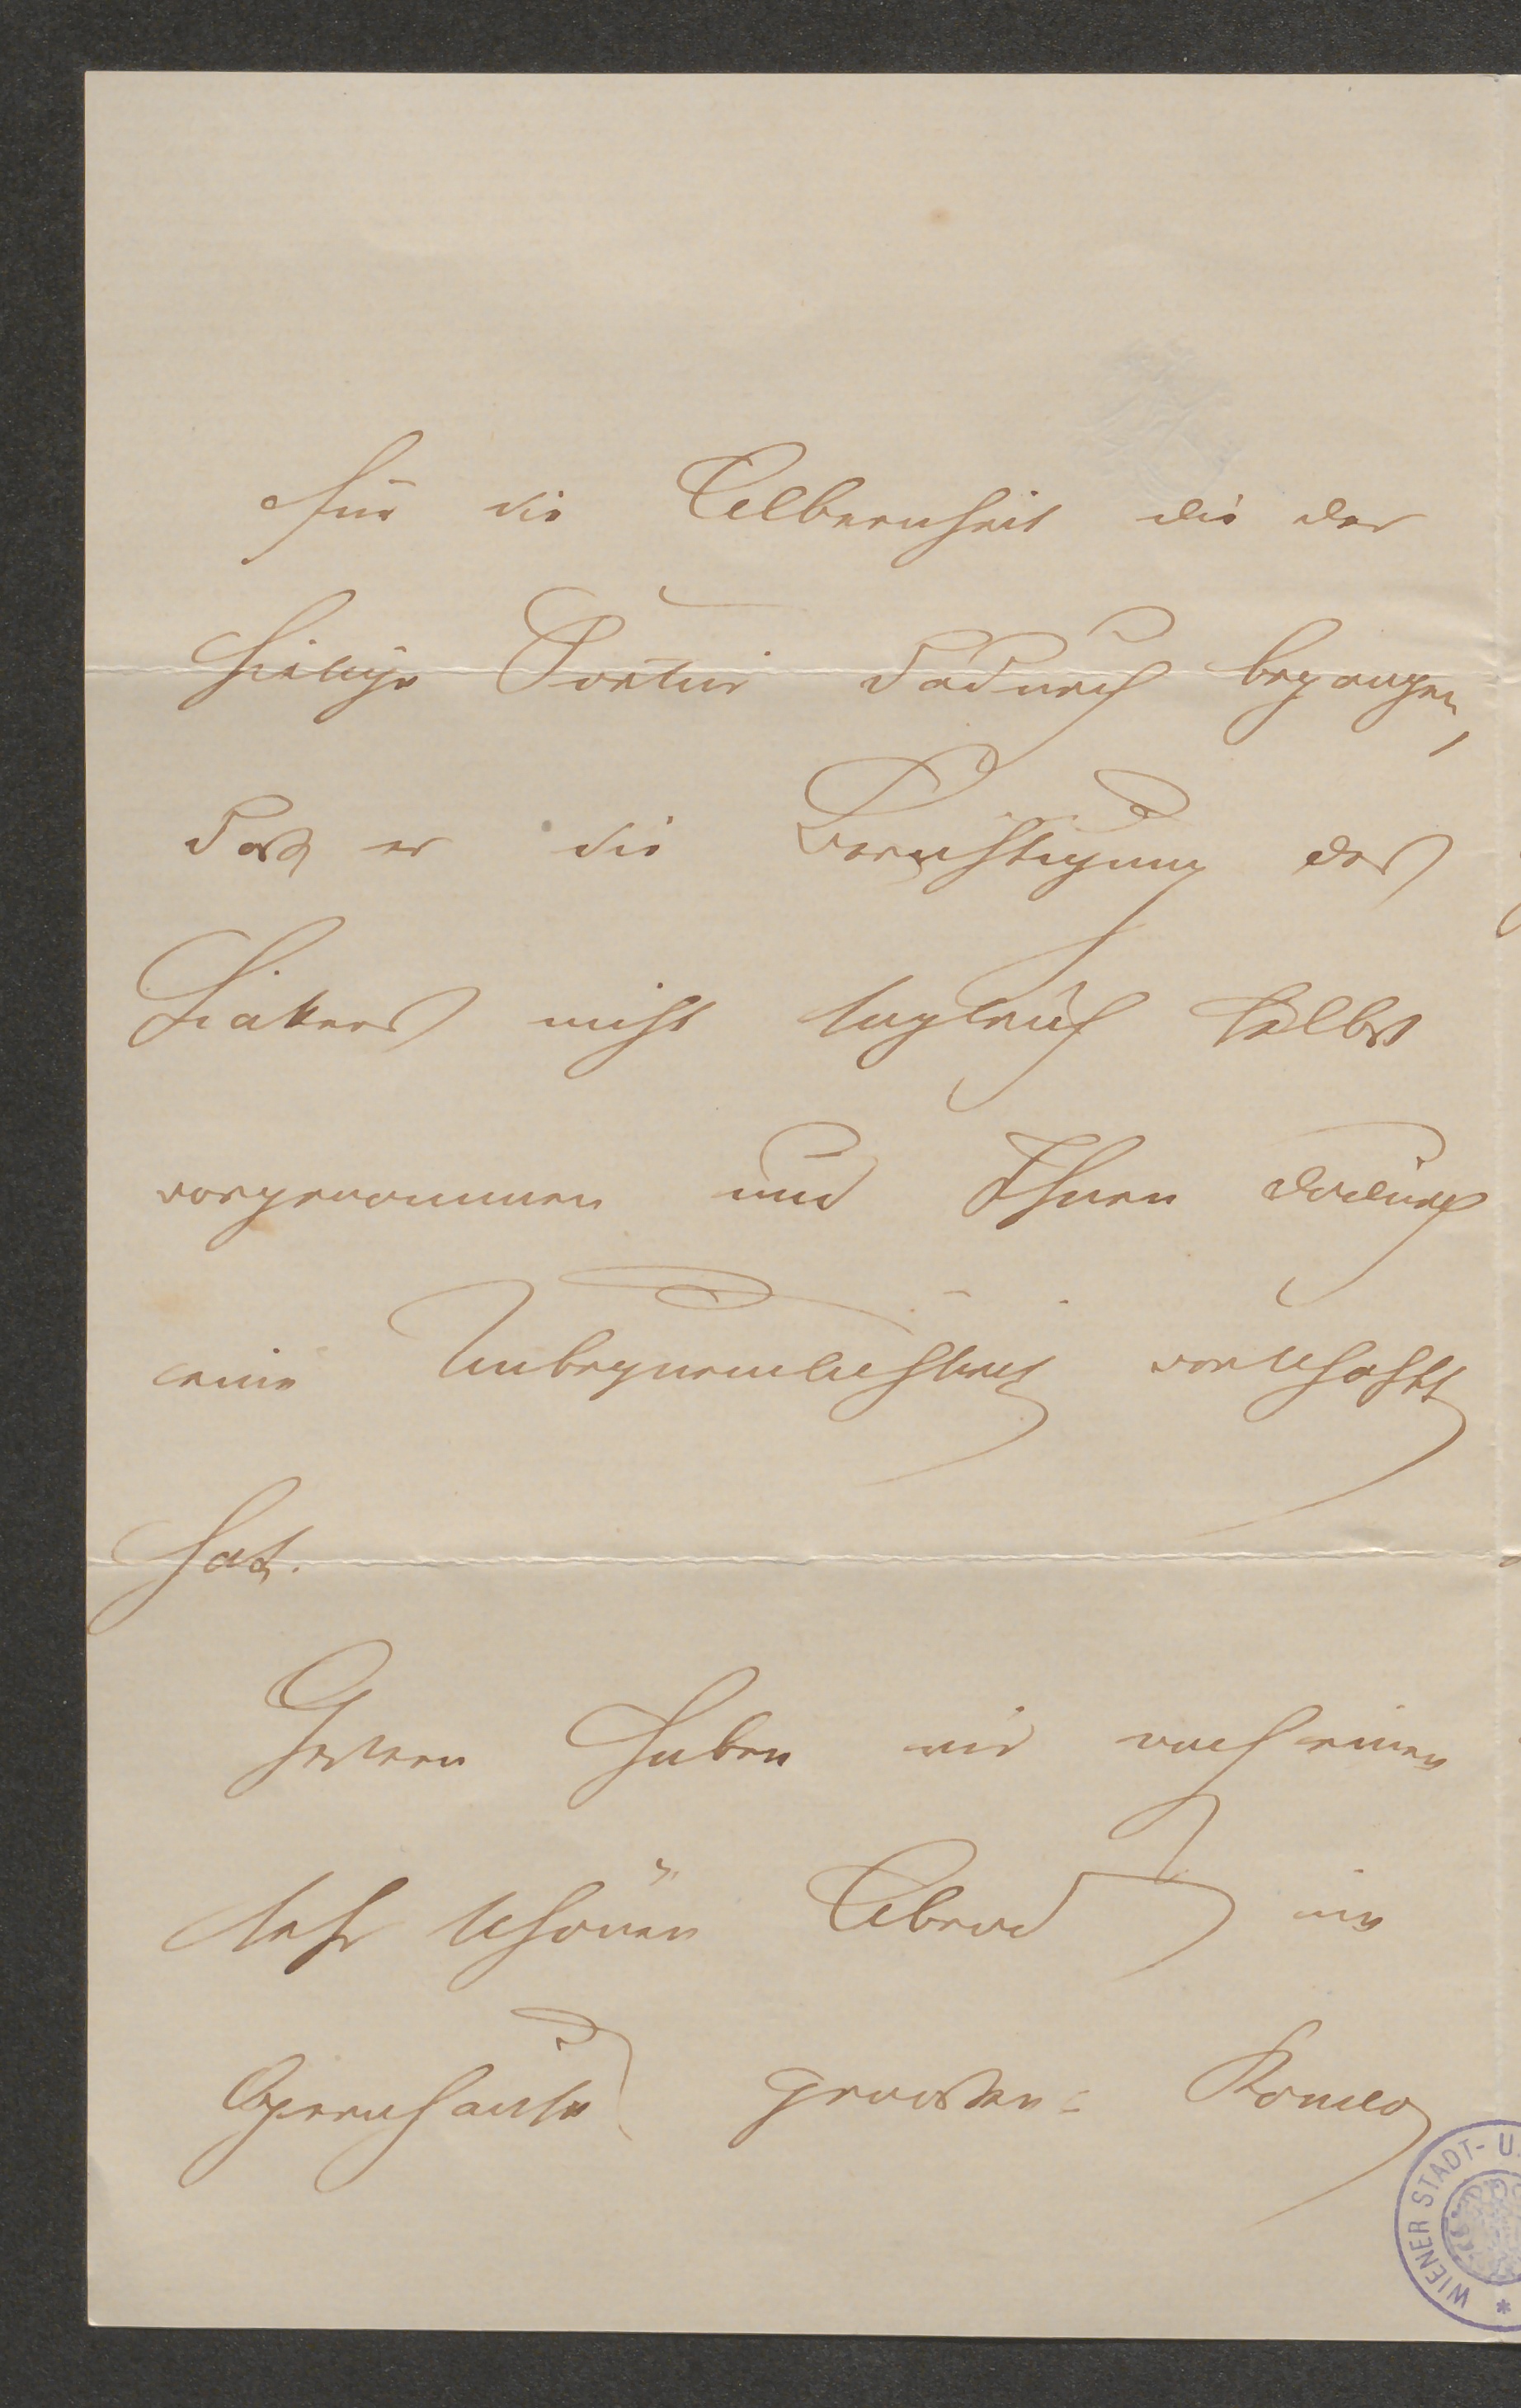 für die Albernheit die der
hiesige Portier dadurch begangen,
daß er die Berichtigung des
Fiakers nicht sogleich selbst
vorgenommen und Ihnen dadurch
eine Unbequemlichkeit verschafft
hat.
Gestern haben wir noch einen
sehr schönen Abend im
Opernhause genossen: Romeo
WIENER STADT- U.